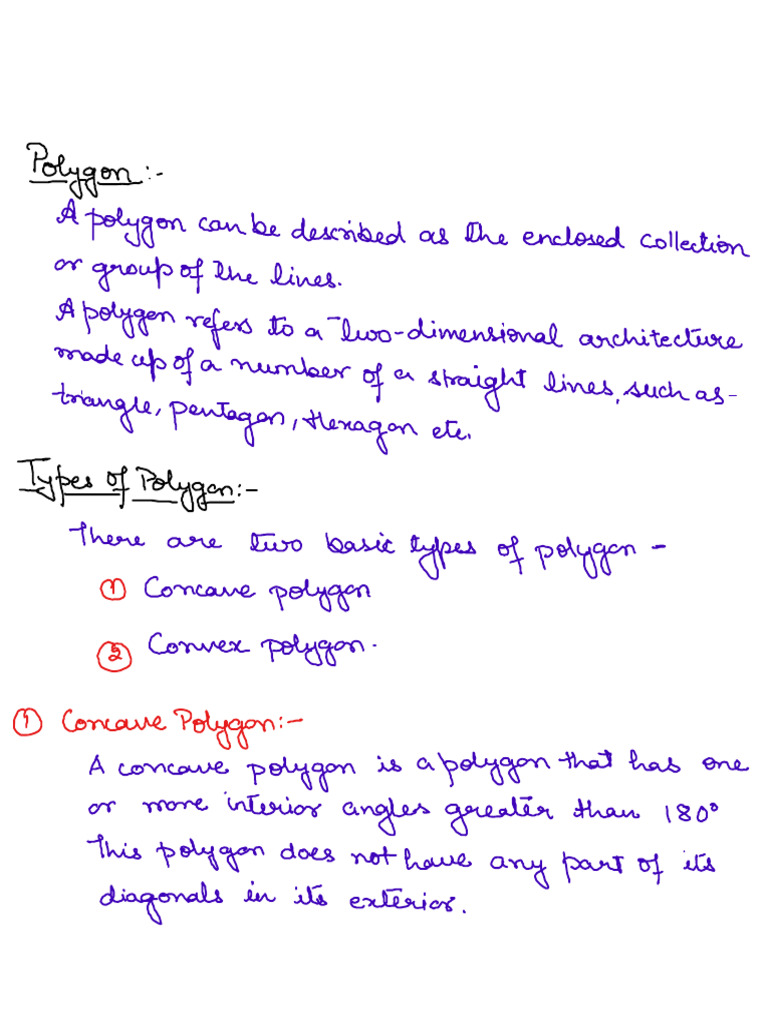 Polygon:-
A polygon can be described as the enclosed collection
or group of the lines.
A polygon refers to a two-dimensional architecture
made up of a number of a straight lines, such as-
triangle, pentagon, Hexagon etc.
Types of Polygon:-
There are two basic types of polygon -
① Concave polygon
② Convex polygon.
① Concave Polygon:-
A concave polygon is a polygon that has one
or more interior angles greater than 180°
This polygon does not have any part of its
diagonals in its exterior.